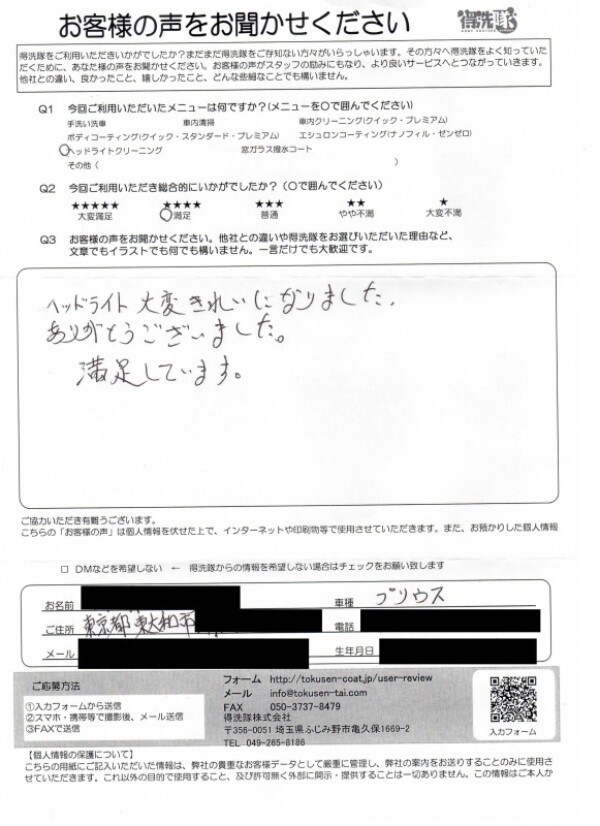 お客様の声をお聞かせください
得洗隊
得洗隊をご利用いただきいかがでしたか？まだまだ得洗隊をご存知ない方々がいらっしゃいます。その方々へ得洗隊をよく知っていた
だくために、あなた様の声をお聞かせください。お客様の声がスタッフの励みにもなり、より良いサービスへとつながっていきます。
他社との違い、良かったこと、嬉しかったこと、どんな些細なことでも構いません。
Q1 今回ご利用いただいたメニューは何ですか？(メニューを〇で囲んでください)
手洗い洗車 車内清掃 車内クリーニング(クイック・プレミアム)
ボディコーティング(クイック・スタンダード・プレミアム) エシュロンコーティング(ナノフィル・ゼンゼロ)
ヘッドライトクリーニング 窓ガラス撥水コート
その他 ( )
Q2 今回ご利用いただき総合的にいかがでしたか？（〇で囲んでください）
★★★★★ ★★★★ ★★★ ★★ ★
大変満足 満足 普通 やや不満 大変不満
Q3 お客様の声をお聞かせください。他社との違いや得洗隊をお選びいただいた理由など、
文章でもイラストでも何でも構いません。一言だけでも大歓迎です。
ヘッドライト 大変きれいになりました。
ありがとうございました。
満足しています。
ご協力いただき有難うございます。
こちらの「お客様の声」は個人情報を伏せた上で、インターネットや印刷物等で使用させていただきます。また、お預かりした個人情報
□ DMなどを希望しない ← 得洗隊からの情報を希望しない場合はチェックをお願い致します
お名前 車種 プリウス
ご住所 東京都東大和市 電話
メール 生年月日
ご応募方法
①入力フォームから送信
②スマホ・携帯等で撮影後、メール送信
③FAXで送信
フォーム http://tokusen-coat.jp/user-review
メール info@tokusen-tai.com
FAX 050-3737-8479
得洗隊株式会社
〒356-0051 埼玉県ふじみ野市亀久保1669-2
TEL 049-265-8186
入力フォーム
【個人情報の保護について】
こちらの用紙にご記入いただいた情報は、弊社の貴重なお客様データとして厳重に管理し、弊社の案内をお送りすることのみに使用さ
せていただきます。これ以外の目的で使用すること、及び許可無く外部に開示・提供することは一切ありません。この情報はご本人か